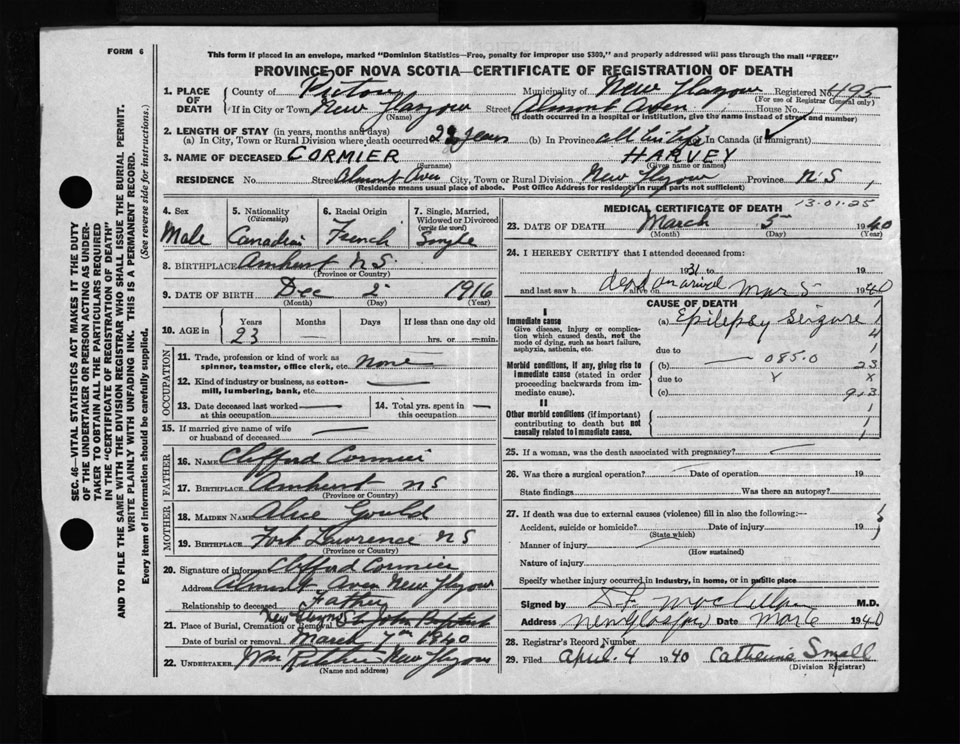 FORM 6
This form if placed in an envelope, marked "Dominion Statistics—Free, penalty for improper use $300," and properly addressed will pass through the mail "FREE"
PROVINCE OF NOVA SCOTIA—CERTIFICATE OF REGISTRATION OF DEATH
1. PLACE OF DEATH
County of Pictou Municipality of New Glasgow Registered No. 495
(For use of Registrar General only)
If in City or Town New Glasgow Street Almont Aven House No.
(Name) (If death occurred in a hospital or institution, give the name instead of street and number)
2. LENGTH OF STAY (in years, months and days)
(a) In City, Town or Rural Division where death occurred years (b) In Province In Canada (if immigrant)
3. NAME OF DECEASED CORMIER HARVEY
(Surname) (Given name or names)
RESIDENCE No. Street Almont Aven City, Town or Rural Division New Glasgow Province N S
(Residence means usual place of abode. Post Office Address for residents in rural parts not sufficient)
4. Sex Male
5. Nationality (Citizenship) Canadian
6. Racial Origin French
7. Single, Married, Widowed or Divorced (write the word) Single
8. BIRTHPLACE Amherst N S.
(Province or Country)
9. DATE OF BIRTH Dec 2 1916
(Month) (Day) (Year)
10. AGE in Years 23 Months — Days If less than one day old hrs. or min.
OCCUPATION
11. Trade, profession or kind of work as spinner, teamster, office clerk, etc. None
12. Kind of industry or business, as cotton-mill, lumbering, bank, etc. —
13. Date deceased last worked at this occupation —
14. Total yrs. spent in this occupation —
15. If married give name of wife or husband of deceased —
FATHER
16. NAME Clifford Cormier
17. BIRTHPLACE Amherst N S
(Province or Country)
MOTHER
18. MAIDEN NAME Alice Gould
19. BIRTHPLACE Fort Lawrence N S
(Province or Country)
20. Signature of informant Clifford Cormier
Address Almont Aven New Glasgow
Relationship to deceased Father
21. Place of Burial, Cremation or Removal New Glasgow St John Baptist
Date of burial or removal March 7th 1940
22. UNDERTAKER New Glasgow
(Name and address)
MEDICAL CERTIFICATE OF DEATH 13-01-25
23. DATE OF DEATH March 5 1940
(Month) (Day) (Year)
24. I HEREBY CERTIFY that I attended deceased from:
1931 to 19
and last saw h alive on dead on arrival Mar 5 1940
CAUSE OF DEATH
I
Immediate cause
Give disease, injury or complication which caused death, not the mode of dying, such as heart failure, asphyxia, asthenia, etc.
(a) Epilepsy Seizure
due to
Morbid conditions, if any, giving rise to immediate cause (stated in order proceeding backwards from immediate cause).
(b) — 085.0 23
due to
(c)
II
Other morbid conditions (if important) contributing to death but not causally related to immediate cause.
25. If a woman, was the death associated with pregnancy?
26. Was there a surgical operation? Date of operation 19
State findings Was there an autopsy?
27. If death was due to external causes (violence) fill in also the following:—
Accident, suicide or homicide? Date of injury 19
(State which)
Manner of injury
(How sustained)
Nature of injury
Specify whether injury occurred in industry, in home, or in public place
Signed by M.D.
Address New Glasgow Date Mar 6 1940
28. Registrar's Record Number
29. Filed April 4 1940 Catherine Small
(Division Registrar)
SEC. 46—VITAL STATISTICS ACT MAKES IT THE DUTY
OF THE UNDERTAKER OR PERSON ACTING AS UNDERTAKER
TO OBTAIN ALL THE PARTICULARS REQUIRED
IN THE "CERTIFICATE OF REGISTRATION OF DEATH"
AND TO FILE THE SAME WITH THE DIVISION REGISTRAR WHO SHALL ISSUE THE BURIAL PERMIT.
WRITE PLAINLY WITH UNFADING INK. THIS IS A PERMANENT RECORD.
Every item of information should be carefully supplied. (See reverse side for instructions.)